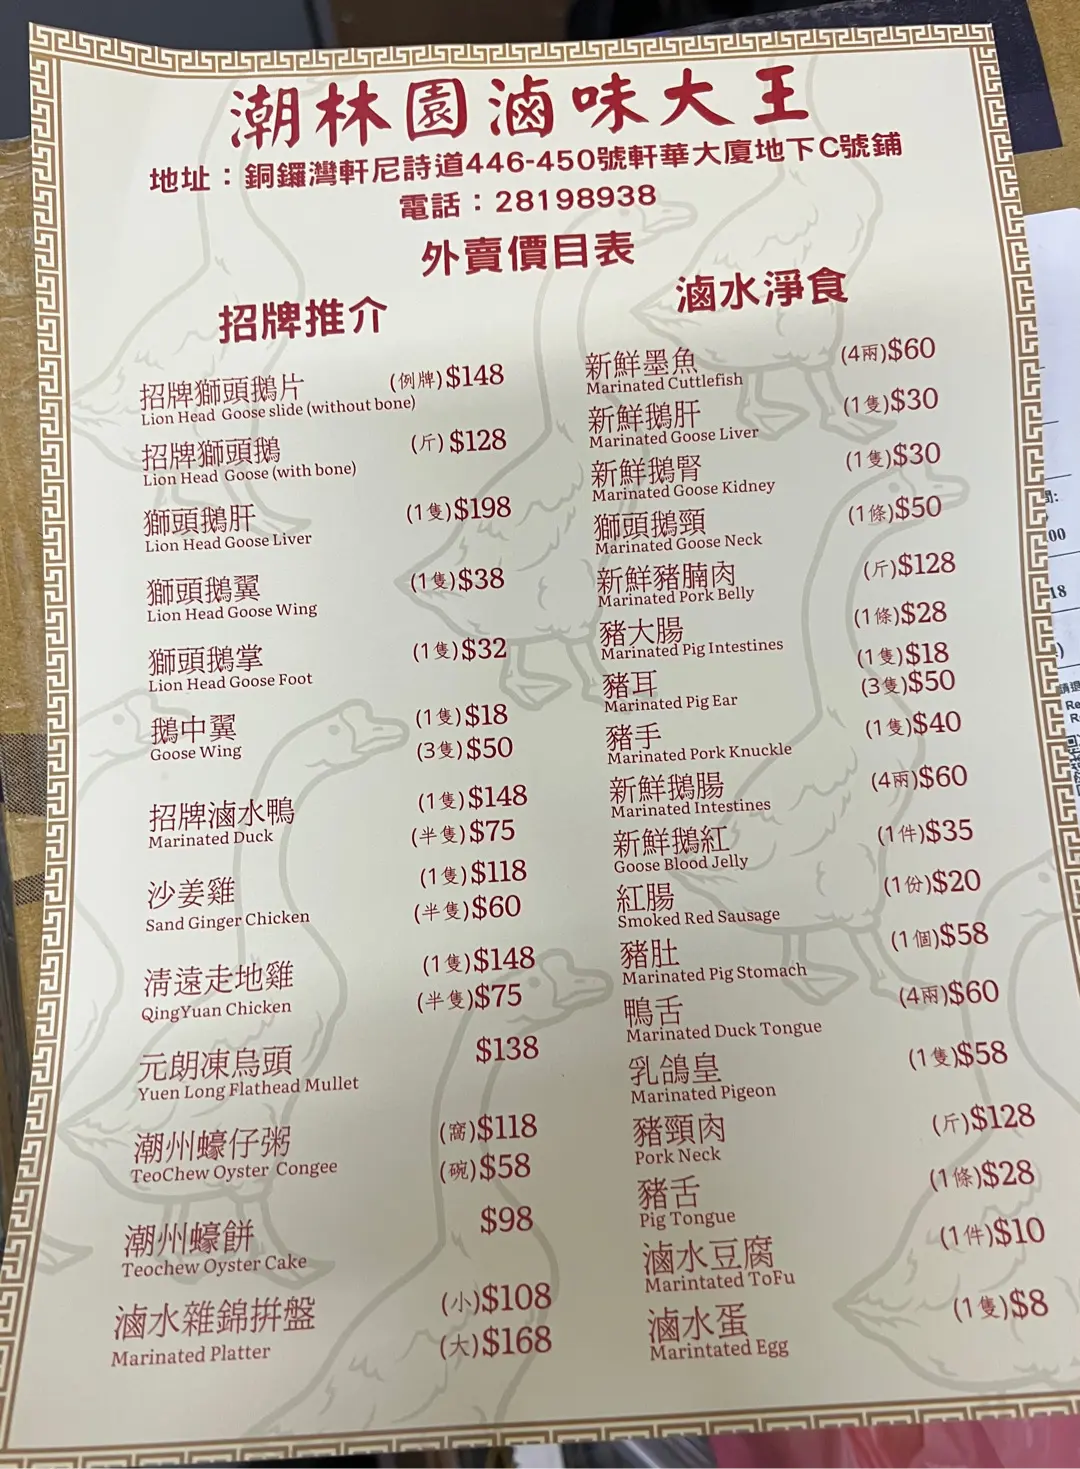 潮林園滷味大王
地址：銅鑼灣軒尼詩道446-450號軒華大廈地下C號鋪
電話：28198938
外賣價目表
招牌推介
招牌獅頭鵝片 (例牌)$148
Lion Head Goose slide (without bone)
招牌獅頭鵝 (斤) $128
Lion Head Goose (with bone)
獅頭鵝肝 (1隻)$198
Lion Head Goose Liver
獅頭鵝翼 (1隻)$38
Lion Head Goose Wing
獅頭鵝掌 (1隻)$32
Lion Head Goose Foot
鵝中翼 (1隻)$18
Goose Wing (3隻)$50
招牌滷水鴨 (1隻)$148
Marinated Duck (半隻)$75
沙姜雞 (1隻)$118
Sand Ginger Chicken (半隻)$60
清遠走地雞 (1隻)$148
QingYuan Chicken (半隻)$75
元朗凍烏頭 $138
Yuen Long Flathead Mullet
潮州蠔仔粥 (窩)$118
TeoChew Oyster Congee (碗)$58
潮州蠔餅 $98
Teochew Oyster Cake
滷水雜錦拼盤 (小)$108
Marinated Platter (大)$168
滷水淨食
新鮮墨魚 (4兩)$60
Marinated Cuttlefish
新鮮鵝肝 (1隻)$30
Marinated Goose Liver
新鮮鵝腎 (1隻)$30
Marinated Goose Kidney
獅頭鵝頸 (1條)$50
Marinated Goose Neck
新鮮豬腩肉 (斤)$128
Marinated Pork Belly
豬大腸 (1條)$28
Marinated Pig Intestines
豬耳 (1隻)$18
Marinated Pig Ear (3隻)$50
豬手 (1隻)$40
Marinated Pork Knuckle
新鮮鵝腸 (4兩)$60
Marinated Intestines
新鮮鵝紅 (1件)$35
Goose Blood Jelly
紅腸 (1份)$20
Smoked Red Sausage
豬肚 (1個)$58
Marinated Pig Stomach
鴨舌 (4兩)$60
Marinated Duck Tongue
乳鴿皇 (1隻)$58
Marinated Pigeon
豬頸肉 (斤)$128
Pork Neck
豬舌 (1條)$28
Pig Tongue
滷水豆腐 (1件)$10
Marintated ToFu
滷水蛋 (1隻)$8
Marintated Egg
00
18
Re